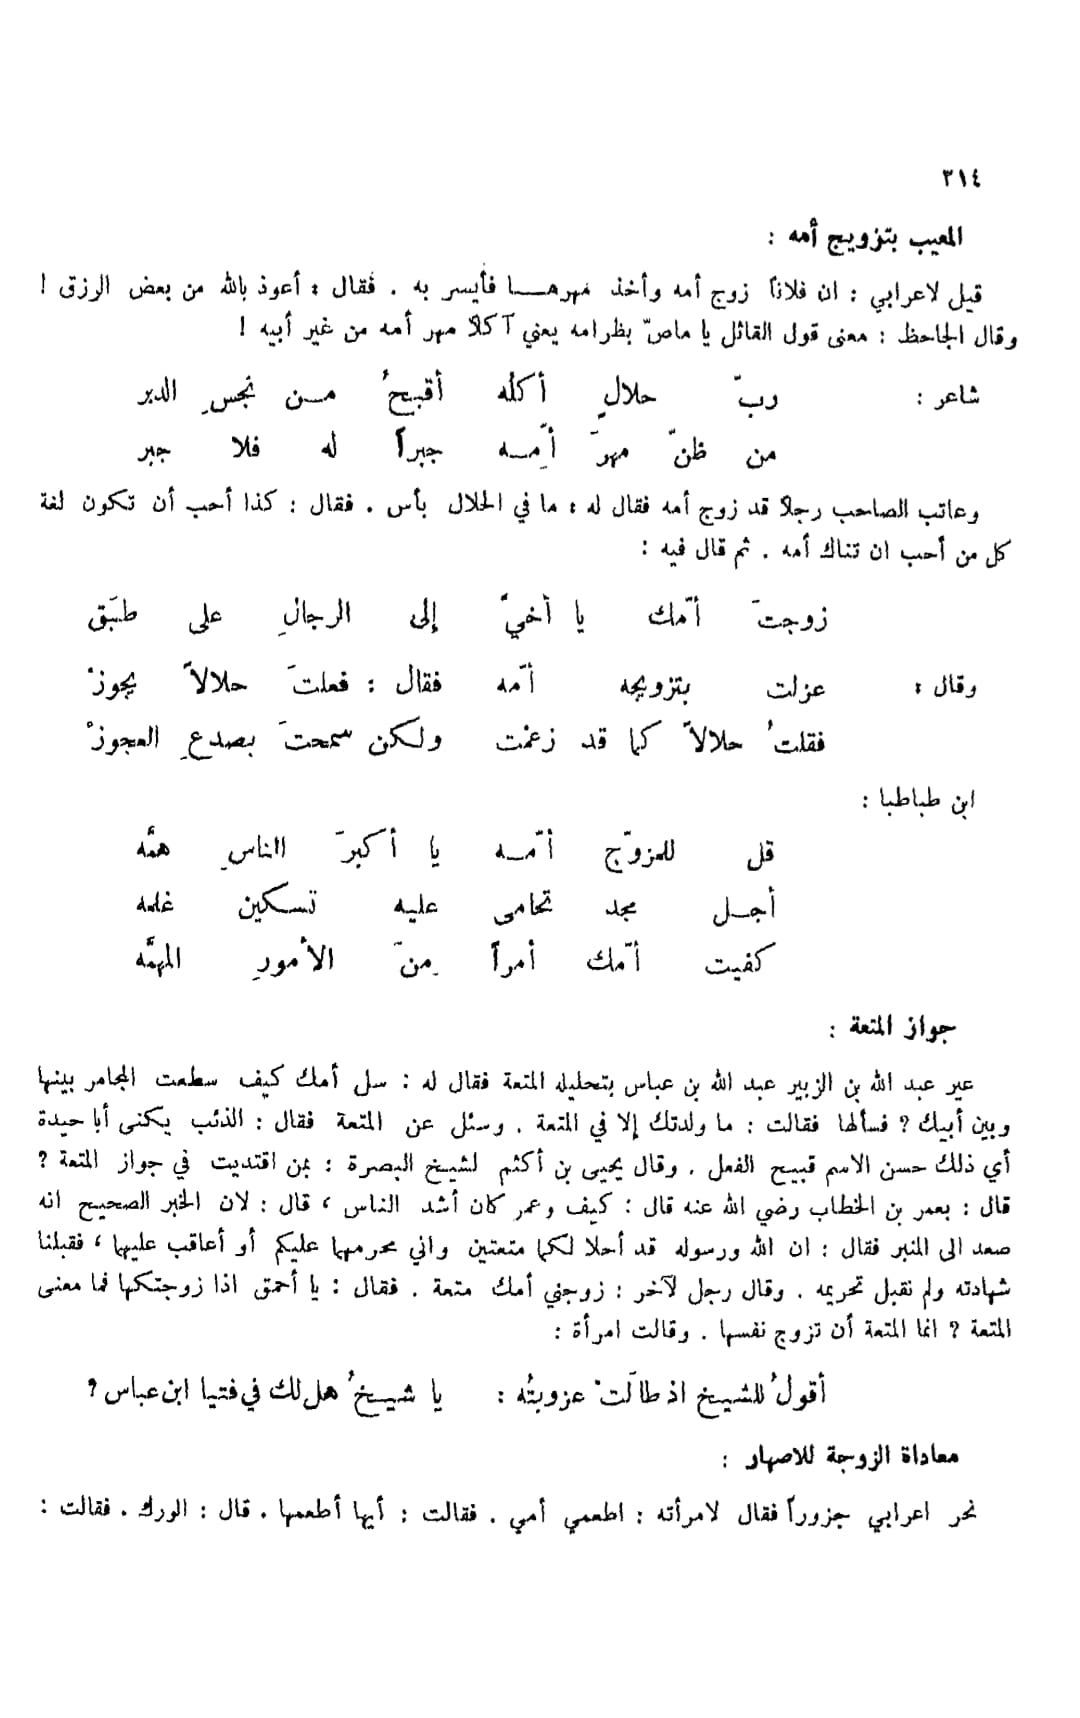 ٣١٤
المعيب بتزويج أمه :
قيل لاعرابي : ان فلاناً زوج أمه وأخذ مهرهــا فأيسر به . فقال : أعوذ بالله من بعض الرزق !
وقال الجاحظ : معنى قول القائل يا ماصّ بظرامه يعني آكلا مهر أمه من غير أبيه !
شاعر : ربّ حلالٍ أكلُه أقبحُ مــن نجسِ الدبر
من ظنّ مهرَ أمّــه جبراً له فلا جبر
وعاتب الصاحب رجلا قد زوج أمه فقال له : ما في الحلال بأس . فقال : كذا أحب أن تكون لغة
كل من أحب ان تناك أمه . ثم قال فيه :
زوجتَ أمّك يا أخيّ إلى الرجالِ على طبَق
وقال : عزلت بتزويجه أمّه فقال : فعلتَ حلالاً يجوزْ
فقلتُ حلالاً كما قد زعمْت ولكن سمحتَ بصدعِ العجوزْ
ابن طباطبا :
قل للمزوّج أمّــه يا أكبرَ الناسِ همَّه
أجــل مجد تحامى عليه تسكين غلمه
كفيت أمّك أمراً مِنَ الأمورِ المهمَّه
جواز المتعة :
عير عبد الله بن الزبير عبد الله بن عباس بتحليله المتعة فقال له : سل أمك كيف سطعت المجامر بينها
وبين أبيك ؟ فسألها فقالت : ما ولدتك إلا في المتعة . وسئل عن المتعة فقال : الذئب يكنى أبا حيدة
أي ذلك حسن الاسم قبيح الفعل . وقال يحيى بن أكثم لشيخ البصرة : بمن اقتديت في جواز المتعة ؟
قال : بعمر بن الخطاب رضي الله عنه قال : كيف وعمر كان أشد الناس ، قال : لان الخبر الصحيح انه
صعد الى المنبر فقال : ان الله ورسوله قد أحلا لكما متعتين واني محرمها عليكم أو أعاقب عليها ، فقبلنا
شهادته ولم نقبل تحريمه . وقال رجل لآخر : زوجني أمك متعة . فقال : يا أحمق اذا زوجتكها فما معنى
المتعة ؟ انما المتعة أن تزوج نفسها . وقالت امرأة :
أقولُ للشيخ اذ طالَتْ عزوبتُه : يا شيــخُ هل لك في فتيا ابن عباس ؟
معاداة الزوجة للاصهار :
نحر اعرابي جزوراً فقال لامرأته : اطعمي أمي . فقالت : أيها أطعمها . قال : الورك . فقالت :